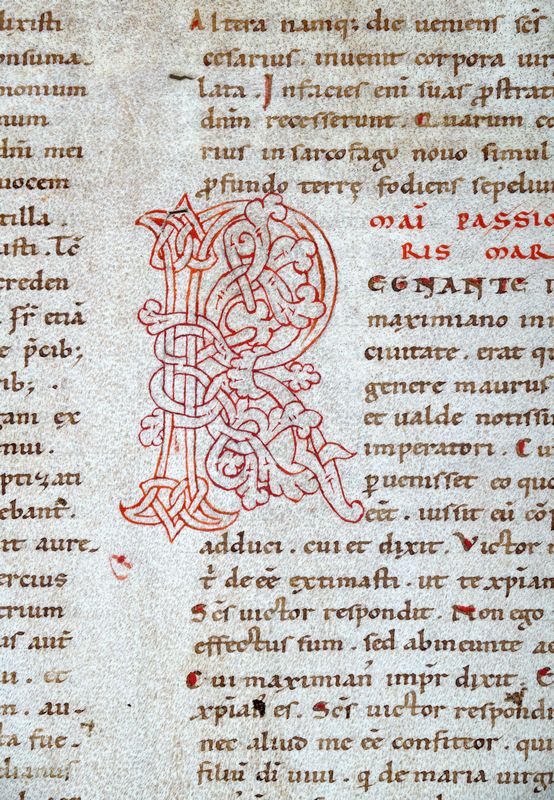 dixisti
onsuma-
monium
num
dn̄i mei
uocem
tilla.
usti. Tc̄
creden
. Fr̄ etiā
e p̄cib;
rib; .
gam ex
nui.
ptizati
ebant̄.
art aure-
ercius
trium
us aut̄
ui. et
n. au-
ta fue-
dianus
Altera namq; die ueniens sc̄s
cesarius. inuenit corpora uir
lata. Infacies eni suas ꝓstrati
dn̄m recesserunt. Quarum co
rius insarcofago nouo simul
ꝓfundo terrę fodiens sepeliui
MAII PASSIO
RIS MAR
REGNANTE
maximiano in
ciuitate. erat qu
genere maurus
et ualde notissi
imperatori. Cu
ꝑuenisset eo quo
eēt. iussit eū cō
adduci. cui et dixit. Victor
t̄ de eē extimasti. ut te xp̄ian
Sc̄s uictor respondit. Non ego
effectus sum. sed abineunte ae
Cui maximian̄ impr̄ dixit.
xp̄ian̄ es. Sc̄s uictor respondit
nec aliud me eē confiteor. qui
filiū dī uiui. q de maria uirgi